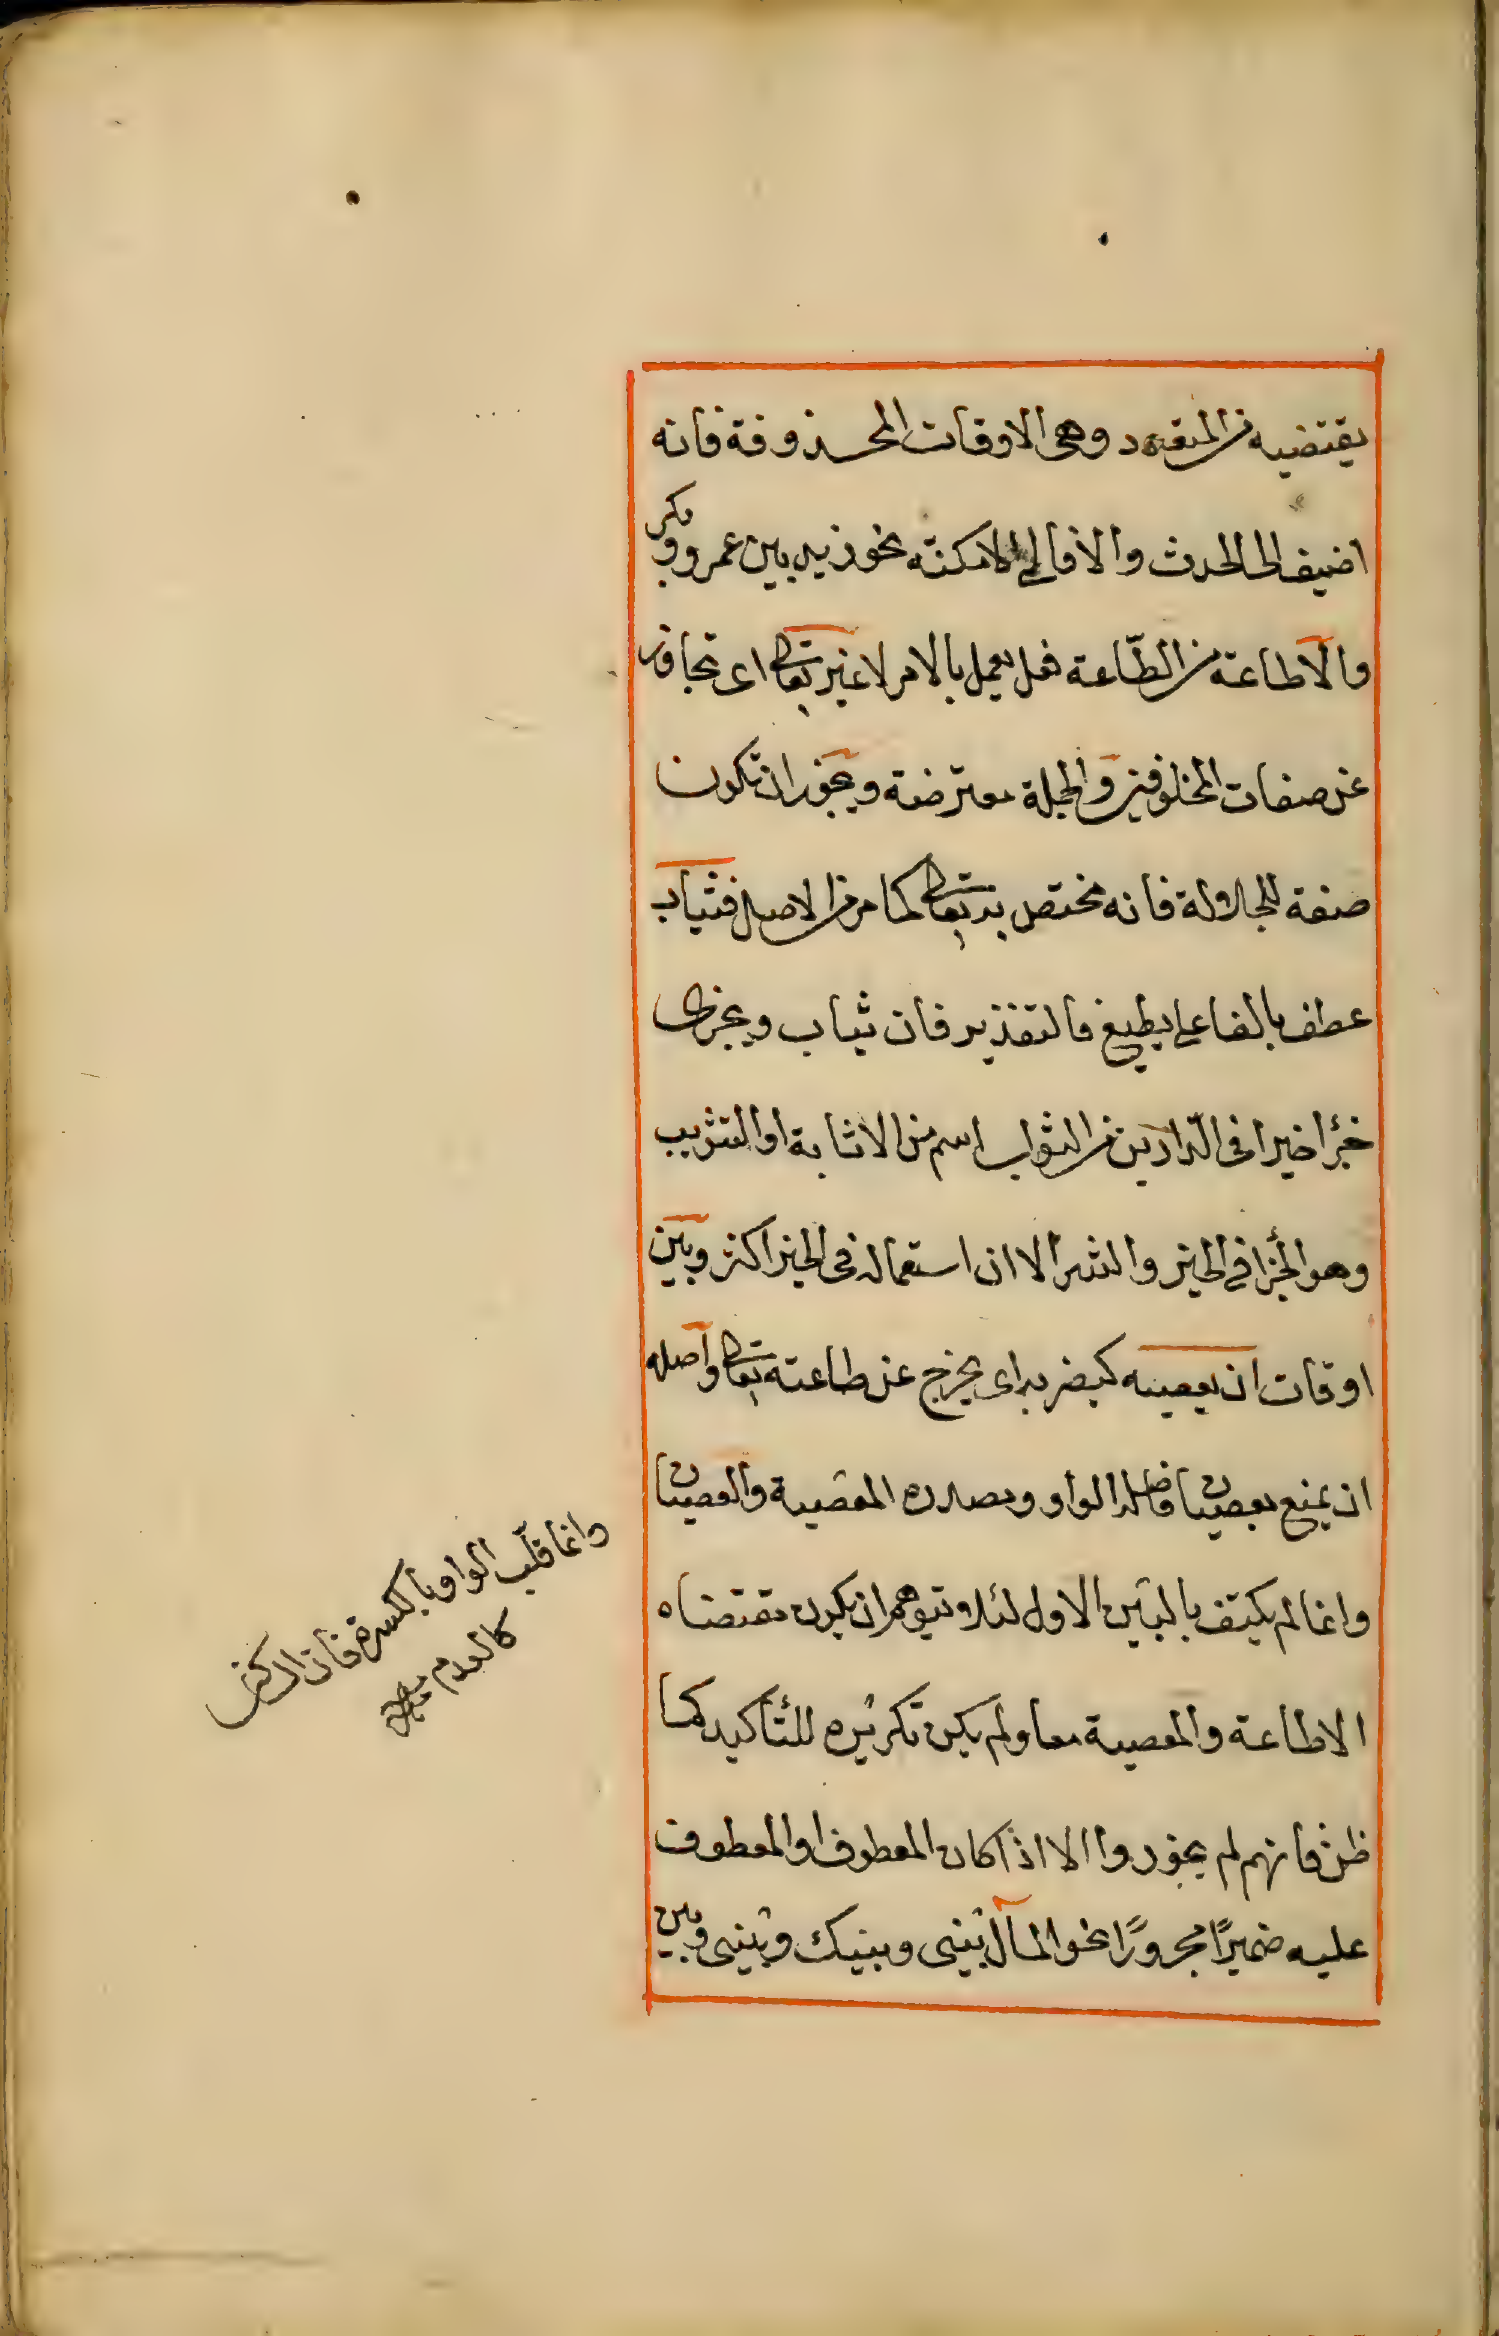 يقتضيه من المتعدد وهى الاوقات المحذوفة فانه
اضيف الى الحدث والا فالى الامكنة نحو زيد بين عمرو وبكر
والاطاعة من الطّاعة فعل يعمل بالامر لا غير تعالى اى تجاوز
عن صفات المخلوقين والجملة معترضة ويجوز ان تكون
صفة للجلالة فانه مختص به تعالى كما مر من الاصل فيثاب
عطف بالفا على يطيع فالتقدير فان يثاب ويجزى
خيرا فى الدّارين من الثواب اسم من الاثابة او التثويب
وهو الجزا فى الخير والشر الا ان استعماله فى الخير اكثر وبين
اوقات ان يعصيه كيضربه اى يخرج عن طاعته تعالى واصله
ان يمنع بعصيان الواو ومصدره المعصية والعصيان
وانما لم يكتف بالبين الاول لئلا يتوهم ان يكون مقتضاه
الاطاعة والمعصية معا ولم يكن تكريره للتأكيد كما
ظن فانهم لم يجوزوا الا اذا كان المعطوف او المعطوف
عليه ضميرًا مجرورًا نحو المال بينى وبينك وبينى وبين
وانما قلب الواو بالكسرة فان الساكن
كالعدم